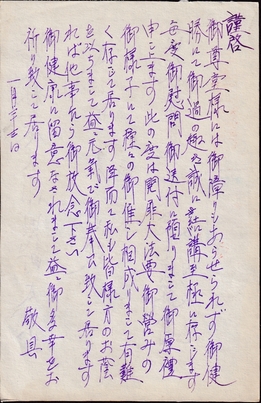 謹啓
御尊堂様には御障りもあらせられず御健
勝にて御過の趣誠に慶講至極に存じます
毎度御慰問御送付に預りまして御厚礼
申します此の度は開扉大法要御営みの
御様子にて種々の御催し相成りまして有難
く存じて居ります降而私も皆様方のお蔭
を以ちまして益々元気で御奉公致して居ります
れば他事乍ら御放念下さい
御健康に留意なされまして益々御多幸をお
祈り致して居ります
一月二十三日
敬具